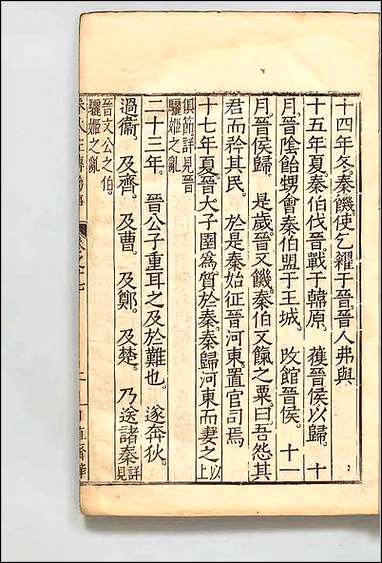 十四年冬。秦饑。使乞糴于晉。晉人弗與
十五年夏。秦伯伐晉。戰于韓原。獲晉侯以歸。十
月。晉陰飴甥會秦伯盟于王城。改館晉侯。十一
月。晉侯歸。是歲晉又饑。秦伯又餼之粟曰。吾怨其
君而矜其民。於是秦始征晉河東。置官司焉
十七年夏。晉大子圉為質於秦。秦歸河東而妻之以上
俱節詳見晉
驪姬之亂
二十三年。晉公子重耳之及於難也。遂奔狄。
過衞。及齊。及曹。及鄭。及楚。乃送諸秦詳見
晉文公之伯。
驪姬之亂